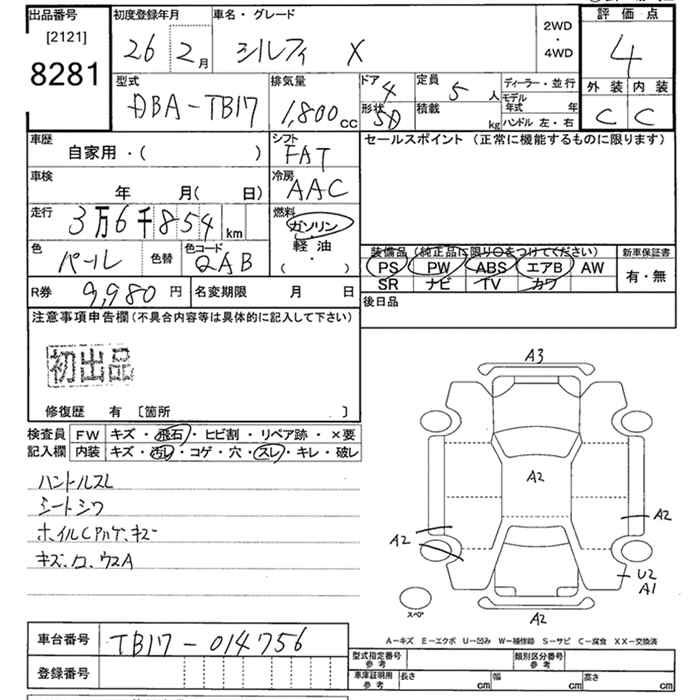 出品番号 初度登録年月 車名・グレード 評価点
[2121] 26年 2月 シルフィ X 2WD ・ 4WD 4
8281 型式 排気量 ドア 4 定員 5人 ディーラー・並行 外装 内装
DBA-TB17 1,800cc 形状 SD 積載 kg モデル年式 年 ハンドル 左・右 C C
車歴 シフト セールスポイント (正常に機能するものに限ります)
自家用・( ) FAT
車検 冷房
年 月( 日) AAC
走行 3万6千854km 燃料
ガソリン
色 色替 色コード 軽油 装備品 (純正品に限り○をつけてください) 新車保証書
パール QAB ( ・ ) PS PW ABS エアB AW 有・無
R券 9,980円 名変期限 月 日 SR ナビ TV カワ
注意事項申告欄 (不具合内容等は具体的に記入して下さい) 後日品
初出品
修復歴 有 [箇所 ]
検査員 FW キズ・飛石・ヒビ割・リペア跡・×要
記入欄 内装 キズ・汚レ・コゲ・穴・スレ・キレ・破レ
ハンドルスレ
シートシワ
A3
A2
A2
A2
U2
A1
A2
スペア
A-キズ E-エクボ U-凹み W-補修跡 S-サビ C-腐食 XX-交換済
車台番号 TB17-014756
登録番号
型式指定番号 参考 類別区分番号 参考
車庫証明用 参考 長さ cm 幅 cm 高さ cm